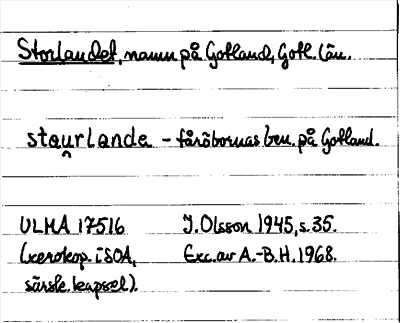 Storlandet, namn på Gotland, Gotl. län.
stau̯rlanda - fåröbornas ben. på Gotland.
ULMA 17516 I. Olsson 1945, s. 35.
(xerokop. i SOA, Exc. av A.-B.H. 1968.
särsk. kapsel).